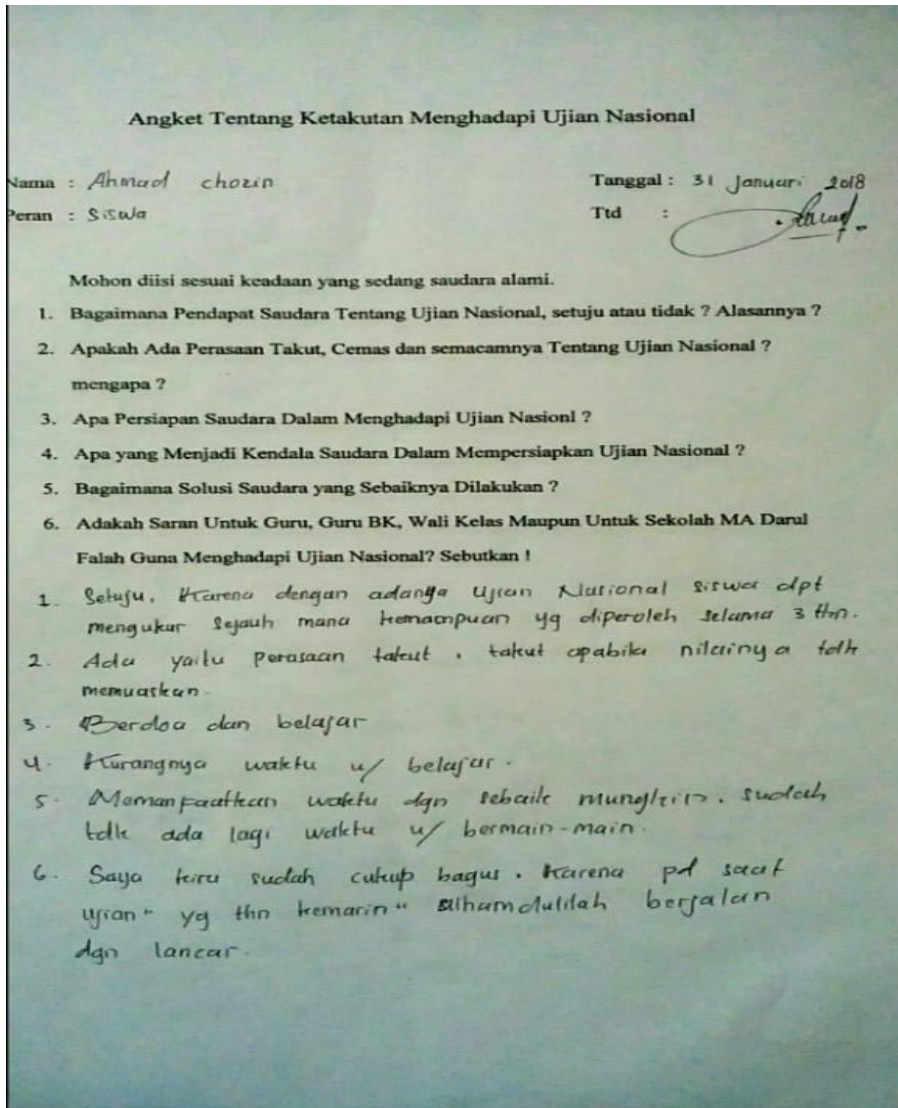 Angket Tentang Ketakutan Menghadapi Ujian Nasional
Nama : Ahmad chozin
Tanggal : 31 Januari 2018
Peran : Siswa
Ttd :
Mohon diisi sesuai keadaan yang sedang saudara alami.
1. Bagaimana Pendapat Saudara Tentang Ujian Nasional, setuju atau tidak ? Alasannya ?
2. Apakah Ada Perasaan Takut, Cemas dan semacamnya Tentang Ujian Nasional ?
mengapa ?
3. Apa Persiapan Saudara Dalam Menghadapi Ujian Nasionl ?
4. Apa yang Menjadi Kendala Saudara Dalam Mempersiapkan Ujian Nasional ?
5. Bagaimana Solusi Saudara yang Sebaiknya Dilakukan ?
6. Adakah Saran Untuk Guru, Guru BK, Wali Kelas Maupun Untuk Sekolah MA Darul
Falah Guna Menghadapi Ujian Nasional? Sebutkan !
1. Setuju. Karena dengan adanya Ujian Nasional siswa dpt
mengukur sejauh mana kemampuan yg diperoleh selama 3 thn.
2. Ada yaitu perasaan takut. takut apabila nilainya tdk
memuaskan.
3. Berdoa dan belajar
4. Kurangnya waktu u/ belajar.
5. Memanfaatkan waktu dgn sebaik mungkin. sudah
tdk ada lagi waktu u/ bermain-main.
6. Saya kira sudah cukup bagus. Karena pd saat
ujian" yg thn kemarin" alhamdulilah berjalan
dgn lancar.